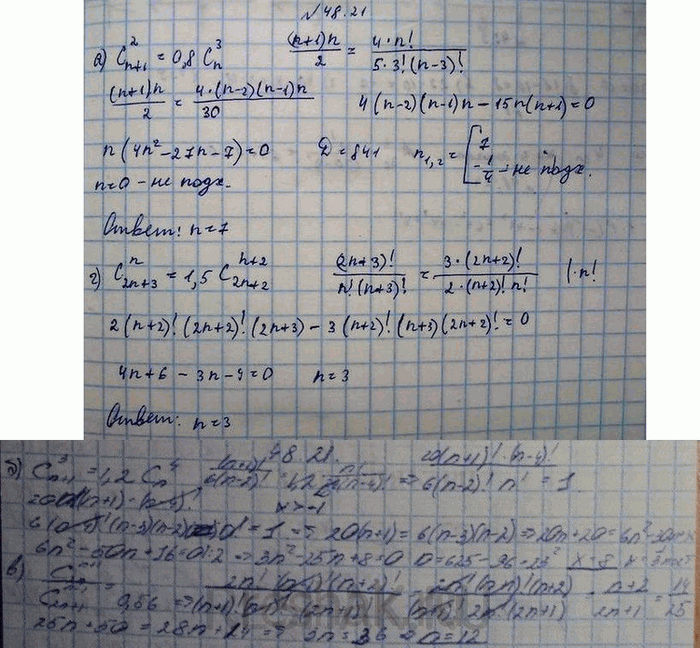 №48.21
а) C²ₙ₊₁ = 0,8 C³ₙ   (n+1)n/2 = 4·n!/(5·3!(n-3)!)
(n+1)n/2 = 4·(n-2)(n-1)n/30   4(n-2)(n-1)n - 15n(n+1)=0
n(4n²-27n-7)=0   D=841   n₁,₂ = [7; -1/4 - не подх.
n=0 - не подх.
Ответ: n=7
г) Cⁿ₂ₙ₊₃ = 1,5 Cⁿ⁺²₂ₙ₊₂   (2n+3)!/(n!(n+3)!) = 3·(2n+2)!/(2·(n+2)!n!)   |·n!
2(n+2)!(2n+2)!(2n+3) - 3(n+2)!(n+3)(2n+2)! = 0
4n+6-3n-9=0   n=3
Ответ: n=3
48.21.
б) C³ₙ₊₁ = 1,2 C⁴ₙ
= 1 ⇒ 20(n+1) = 6(n-3)(n-2) ⇒ 20n+20 = 6n²-30n+
6n²-50n+16=0|:2 ⇒ 3n²-25n+8=0   D=625-96=23²   x=8
в)
25n+50 = 28n+14 ⇒ 3n=36 ⇒ n=12